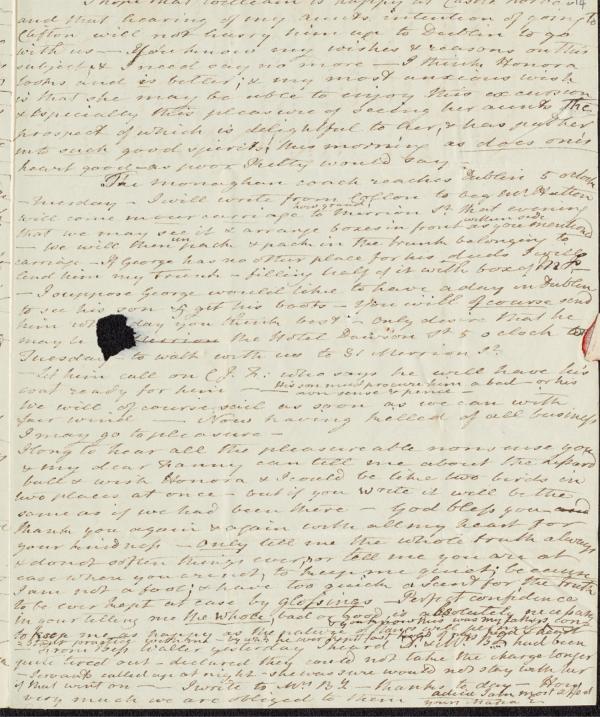 I hope that William is happy at Castle
and that hearing of my aunts intention of going to
Clifton will not hurry him up to Dublin to go
with us — If you know my wishes & reasons on this
subject & I need say no more — I think Honora
looks and is better; & my most anxious wish
is that she may be able to enjoy this excursion
& especially this pleasure of seeing her aunts The
prospect of which is delightful to her, & has put her
into such good spirits this morning as does ones
heart good — as poor Kitty would say
The Monaghan coach reaches Dublin 5 oclock
– Tuesday – I will write from to beg Mr Hutton
will come in our carriage to Merrion St that evening
that we may see it & arrange boxes in front as you mentioned
– We will then unpack & pack in the trunk belonging to
carriage – If George has no other place for his duds I will
lend him my trunk – filling half of it with box of
– I suppose George would like to have a day in Dublin
to see his son & get his boots – You will of course send
him day you think best – only desire that he
may be the Hotel Dawson St 5 o clock
Tuesday – to walk with us to 31 Merrion St.
– Let him call on C.J.F. who says he will have his
coat ready for him – His son must procure him a bed – or his
own sense &
We will of course sail as soon as we can with
fair wind – Now having telled of all business
I may go to pleasure –
I long to hear all the pleasureable nonsense you
& my dear Fanny can tell me about the
ball & wish Honora & I could be like two birds in
two places at once – but if you write it will be the
same as if we had been there – God bless you and
thank you again & again with all my heart for
your kindness – only tell me the whole truth always
& do not soften things ever, or tell me you are at
ease when you are not, to keep me quiet; because
I am not a fool; & have too quick a scent for the truth
to be ever kept at ease by glossings – Perfect confidence
in your telling me the whole, bad or good is absolutely necessary
to keep me as happy as the nature
from Bess Waller yesterday I heard & Mr B. had been
quite tired out – declared they could not take the charge longer
– Servants called up at night – she was sure would not stay with her
if that went on – I write to Mrs B I – thanks to day – How
very much we are obliged to them